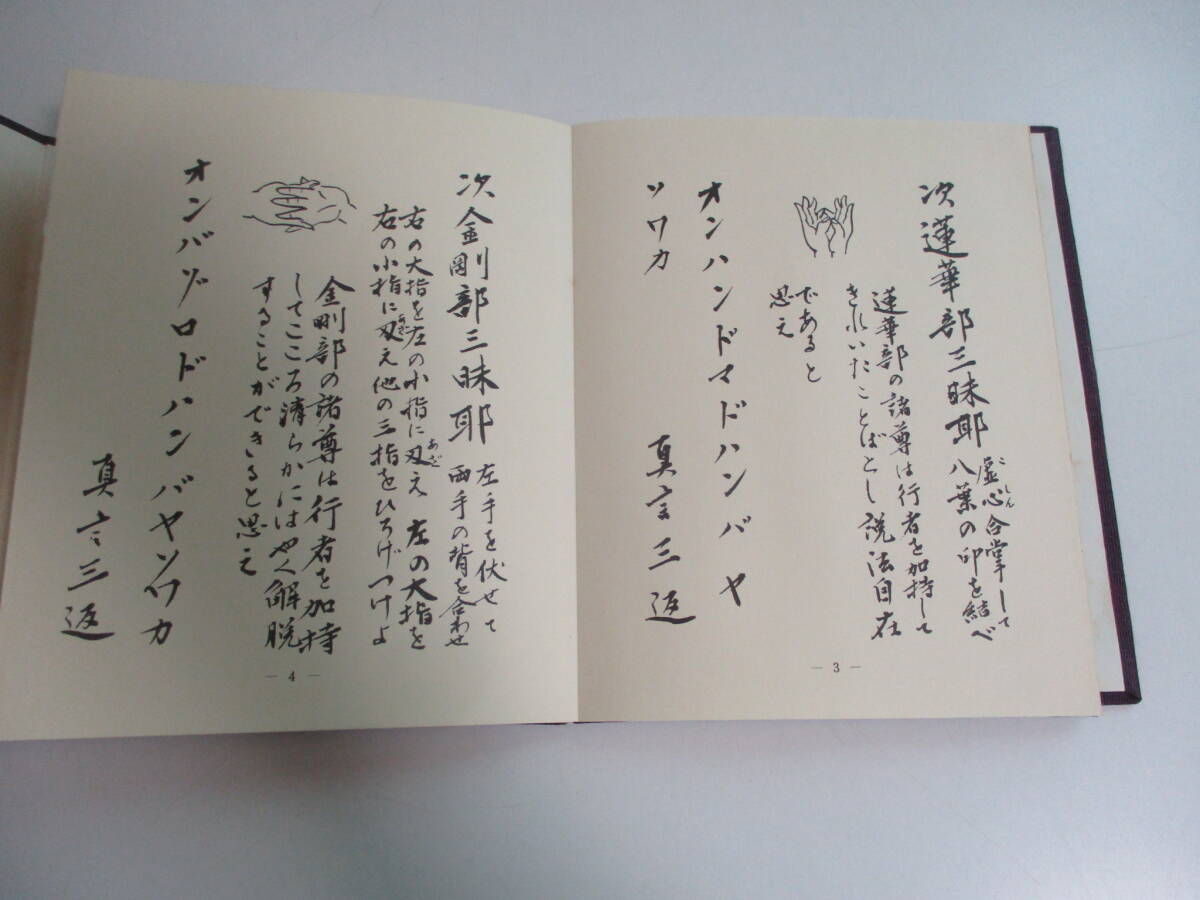 次蓮華部三昧耶 虚心合掌して
こしん
八葉の印を結べ
蓮華部の諸尊は行者を加持して
きれいなことばとし説法自在
であると
思え
オンハンドマドハンバヤ
ソワカ
真言三返
— 3 —
次金剛部三昧耶 左手を伏せて
両手の背を合わせ
右の大指を左の小指に叉え 左の大指を
あざ
右の小指に叉え他の三指をひろげつけよ
あざ
金剛部の諸尊は行者を加持
してこころ清らかにはやく解脱
することができると思え
オンバゾロドハンバヤソワカ
真言三返
— 4 —